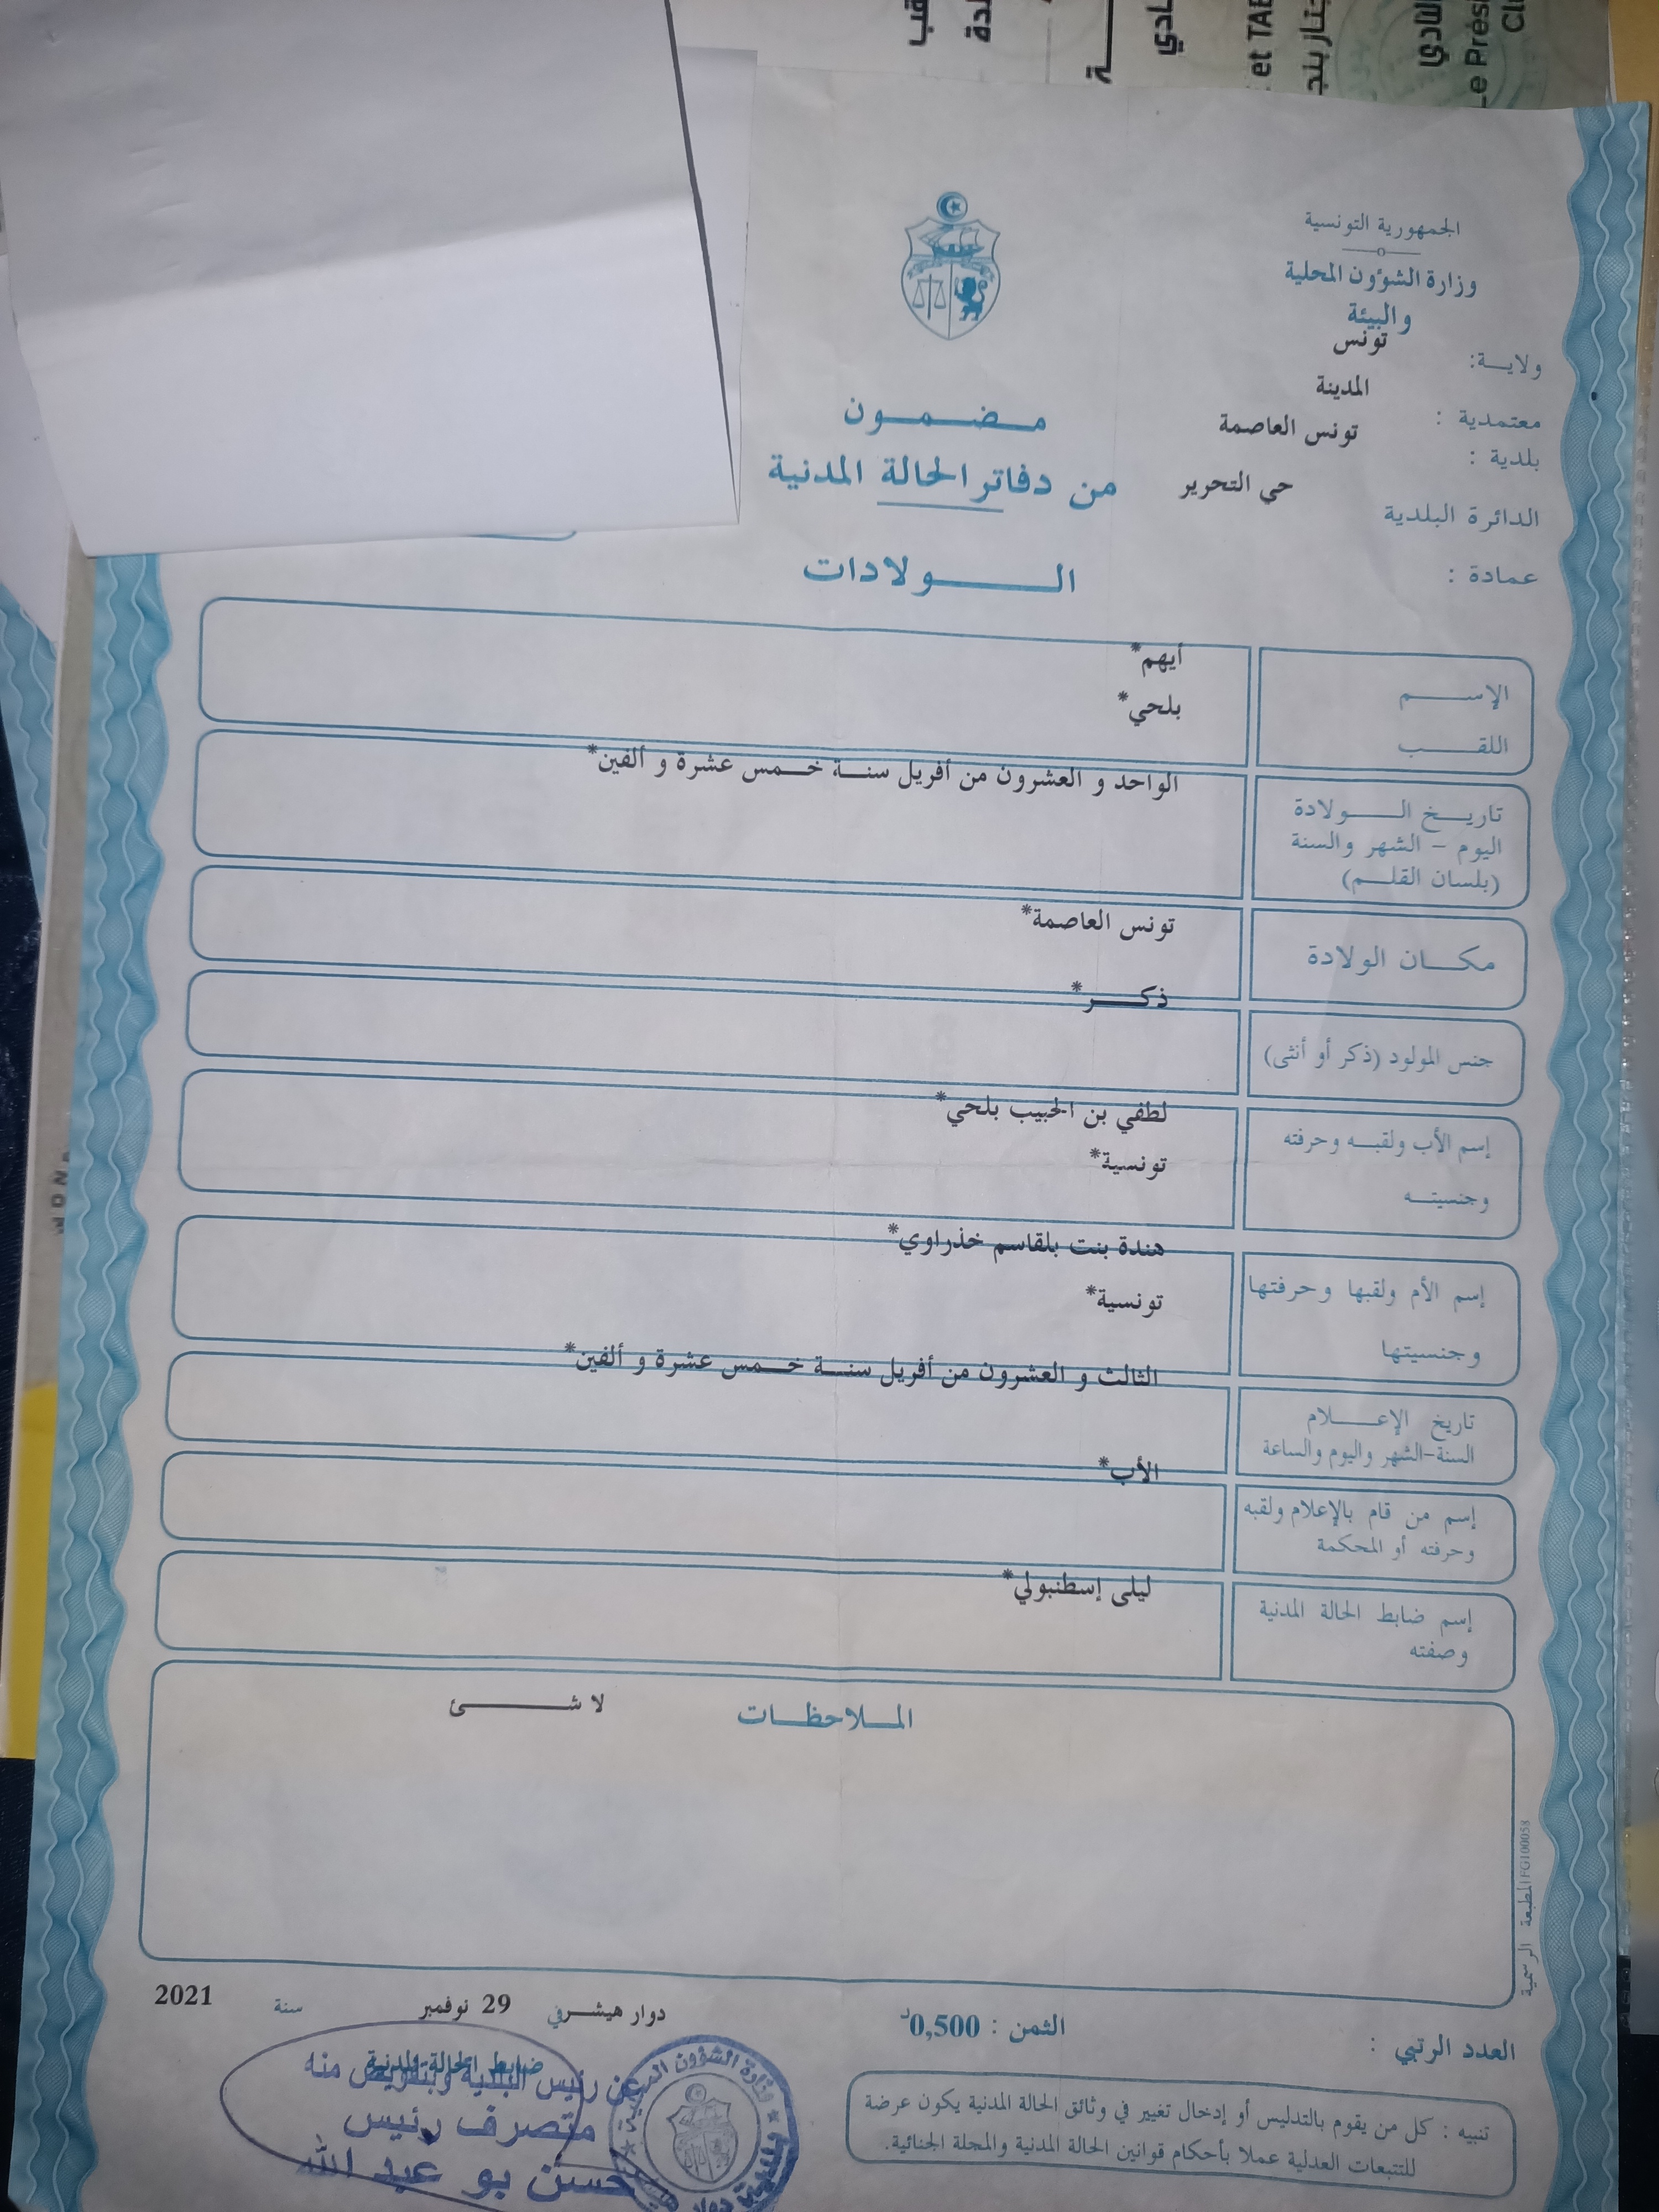 الجمهورية التونسية
وزارة الشؤون المحلية
والبيئة
ولايـــة: تونس
معتمدية : المدينة
بلدية : تونس العاصمة
الدائرة البلدية حي التحرير
عمادة :
مـضـمـون
من دفاتر الحالة المدنية
الـولادات
الإســـم أيهم*
اللقـــب بلحي*
تاريــخ الـــولادة الواحد و العشرون من أفريل سنــة خــمس عشرة و ألفين*
اليوم – الشهر والسنة
(بلسان القلــم)
مكــان الولادة تونس العاصمة*
جنس المولود (ذكر أو أنثى) ذكــر*
إسم الأب ولقبــه وحرفته لطفي بن الحبيب بلحي*
وجنسيتــه تونسية*
إسم الأم ولقبها وحرفتها هندة بنت بلقاسم خذراوي*
وجنسيتها تونسية*
تاريخ الإعـــلام الثالث و العشرون من أفريل سنــة خــمس عشرة و ألفين*
السنة-الشهر واليوم والساعة
إسم من قام بالإعلام ولقبه الأب*
وحرفته أو المحكمة
إسم ضابط الحالة المدنية ليلى إسطنبولي*
وصفته
الملاحظــات
لا شــئ
المطبعة الرسمية FG100058
دوار هيشر في 29 نوفمبر سنة 2021
العدد الرتبي :
الثمن : 0,500د
ضابط الحالة المدنية
عن رئيس البلدية وبتفويض منه
متصرف رئيس
حسن بو عبد الله
تنبيه : كل من يقوم بالتدليس أو إدخال تغيير في وثائق الحالة المدنية يكون عرضة
للتتبعات العدلية عملا بأحكام قوانين الحالة المدنية والمجلة الجنائية.
وزارة الشؤون المحلية
دوار هيشر
et TAE
Le Prési